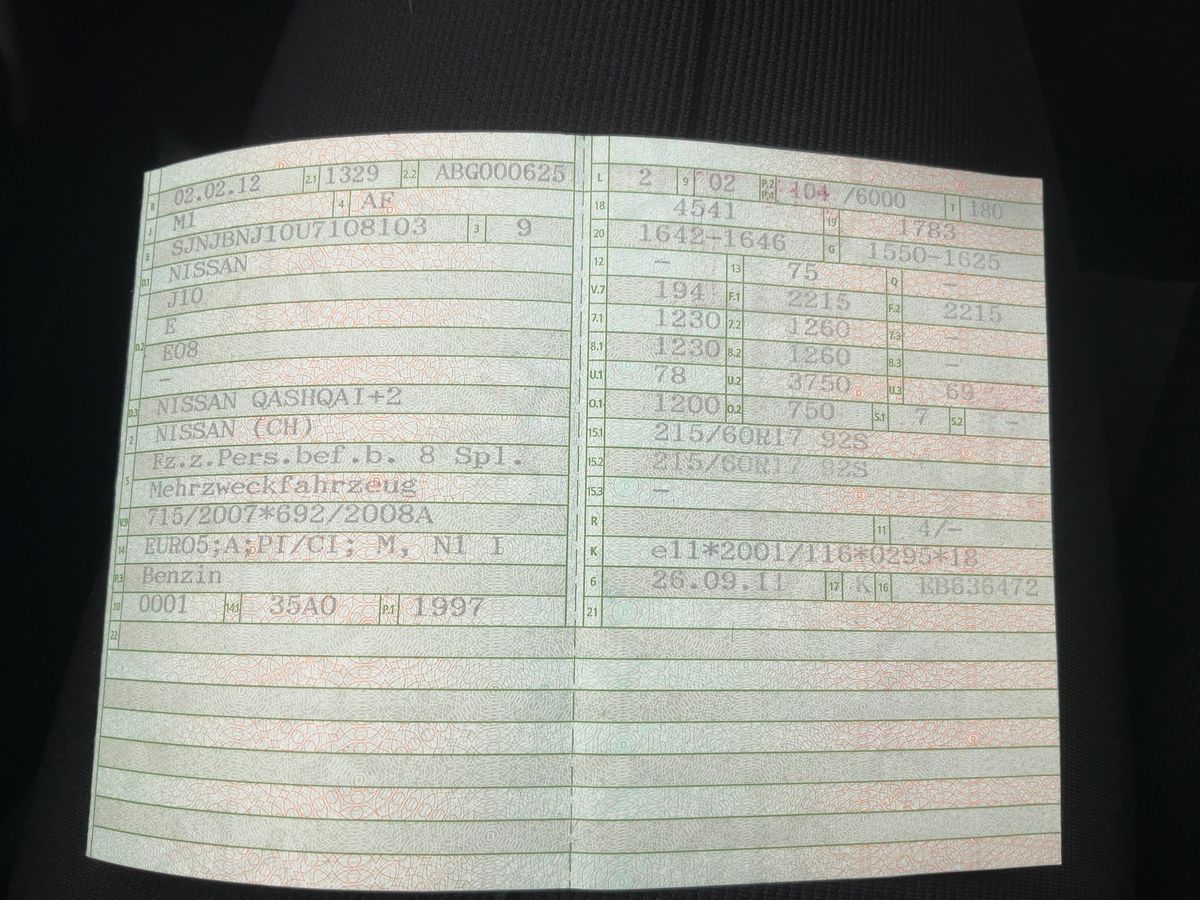 B 02.02.12 2.1 1329 2.2 ABG000625
J M1 4 AF
E SJNJBNJ10U7108103 3 9
D.1 NISSAN
J10
D.2 E
E08
—
D.3 NISSAN QASHQAI+2
2 NISSAN (CH)
5 Fz.z.Pers.bef.b. 8 Spl.
Mehrzweckfahrzeug
V.9 715/2007*692/2008A
14 EURO5;A;PI/CI; M, N1 I
P.3 Benzin
10 0001 14.1 35A0 P.1 1997
22
L 2 9 02 P.2 P.4 104 /6000 T 180
18 4541 19 1783
20 1642-1646 G 1550-1625
12 — 13 75 Q —
V.7 194 F.1 2215 F.2 2215
7.1 1230 7.2 1260 7.3 —
8.1 1230 8.2 1260 8.3 —
U.1 78 U.2 3750 U.3 69
O.1 1200 O.2 750 S.1 7 S.2 —
15.1 215/60R17 92S
15.2 215/60R17 92S
15.3 —
R 11 4/-
K e11*2001/116*0295*18
6 26.09.11 17 K 16 EB636472
21